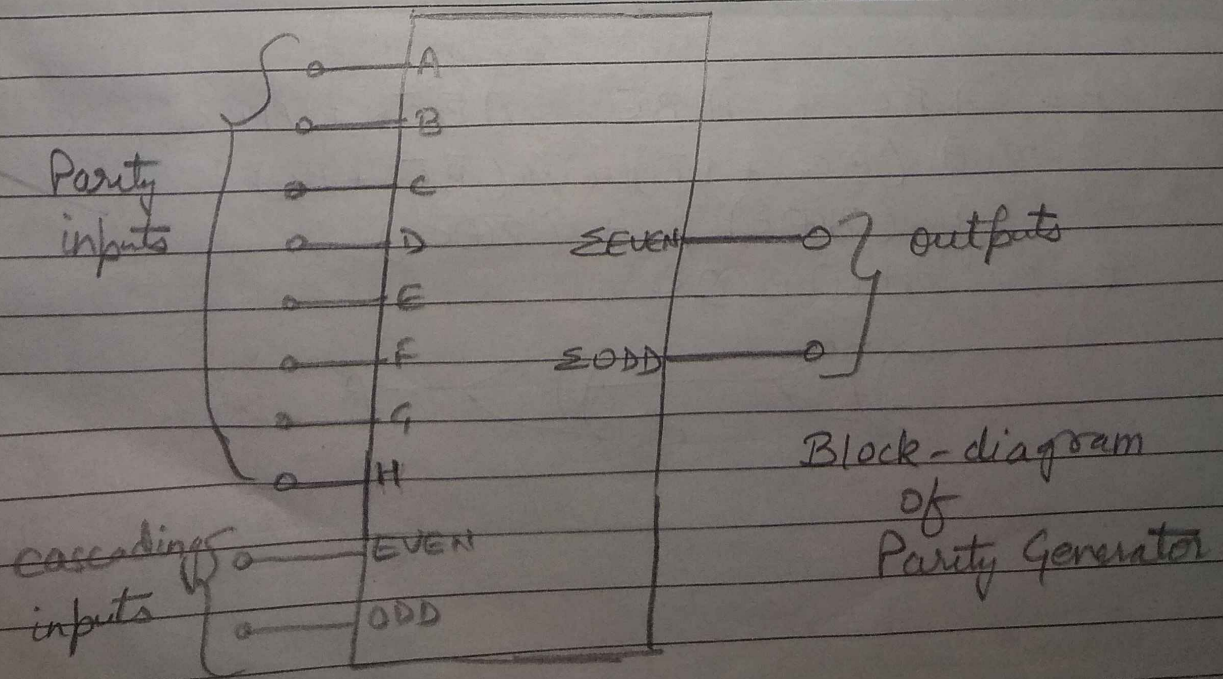 A
B
Parity
inputs
C
D
E
F
G
H
cascading
inputs
EVEN
ODD
ΣEVEN
ΣODD
outputs
Block-diagram
of
Parity Generator